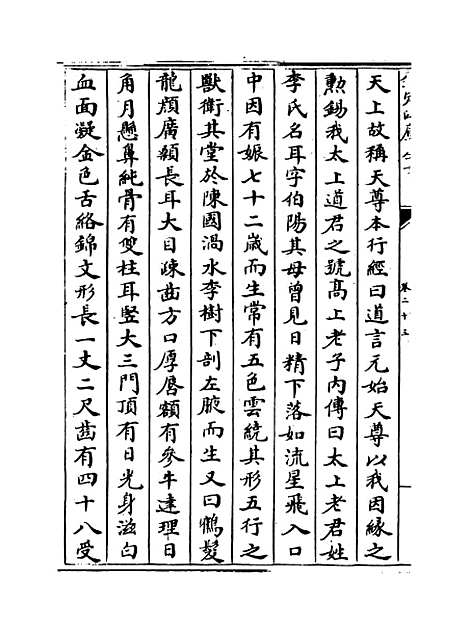 天上故稱天尊本行經曰道言元始天尊以我因緣之
勲錫我太上道君之號髙上老子内傳曰太上老君姓
李氏名耳字伯陽其母曾見日精下落如流星飛入口
中因有娠七十二歳而生常有五色雲繞其形五行之
獸衛其堂於陳國渦水李樹下剖左腋而生又曰鶴髮
龍顔廣顙長耳大目疎齒方口厚唇額有參牛達理日
角月懸鼻純骨有雙柱耳豎大三門頂有日光身滋白
血面凝金色舌絡錦文形長一丈二尺齒有四十八受
卷二十三